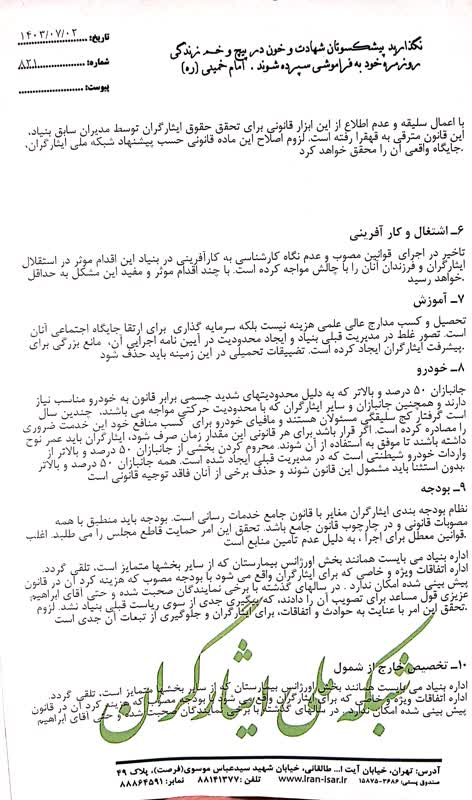 نگذارید پیشکسوتان شهادت و خون در پیچ و خم زندگی
روزمره خود به فراموشی سپرده شوند . امام خمینی (ره)
تاریخ: ۱۴۰۳/۰۷/۰۲
شماره: ۸۲۱
پیوست:
با اعمال سلیقه و عدم اطلاع از این ابزار قانونی برای تحقق حقوق ایثارگران توسط مدیران سابق بنیاد،
این قانون مترقی به قهقرا رفته است. لزوم اصلاح این ماده قانونی حسب پیشنهاد شبکه ملی ایثارگران،
.جایگاه واقعی آن را محقق خواهد کرد
۶ـ اشتغال و کار آفرینی
تاخیر در اجرای قوانین مصوب و عدم نگاه کارشناسی به کارآفرینی در بنیاد این اقدام موثر در استقلال
ایثارگران و فرزندان آنان را با چالش مواجه کرده است. با چند اقدام موثر و مفید این مشکل به حداقل
.خواهد رسید
۷ـ آموزش
تحصیل و کسب مدارج عالی علمی هزینه نیست بلکه سرمایه گذاری برای ارتقا جایگاه اجتماعی آنان
است. تصور غلط در مدیریت قبلی بنیاد و ایجاد محدودیت در آیین نامه اجرایی آن، مانع بزرگی برای
.پیشرفت ایثارگران ایجاد کرده است. تضییقات تحمیلی در این زمینه باید حذف شود
۸ـ خودرو
جانبازان ۵۰ درصد و بالاتر که به دلیل محدودیتهای شدید جسمی برابر قانون به خودرو مناسب نیاز
دارند و همچنین جانبازان و سایر ایثارگران که با محدودیت حرکتی مواجه می باشند، چندین سال
است گرفتار کج سلیقگی مسئولان هستند و مافیای خودرو برای کسب منافع خود این خدمت ضروری
را مصادره کرده است. اگر قرار باشد برای هر قانونی این مقدار زمان صرف شود، ایثارگران باید عمر نوح
داشته باشند تا موفق به استفاده از آن شوند. محروم کردن بخشی از جانبازان ۵۰ درصد و بالاتر از
واردات خودرو شیطنتی است که در مدیریت قبلی ایجاد شده است. همه جانبازان ۵۰ درصد و بالاتر
.بدون استثنا باید مشمول این قانون شوند و حذف برخی از آنان فاقد توجیه قانونی است
۹ـ بودجه
نظام بودجه بندی ایثارگران مغایر با قانون جامع خدمات رسانی است. بودجه باید منطبق با همه
مصوبات قانونی و در چارچوب قانون جامع باشد. تحقق این امر حمایت قاطع مجلس را می طلبد. اغلب
.قوانین معطل برای اجرا ، به دلیل عدم تامین منابع است
اداره بنیاد می بایست همانند بخش اورژانس بیمارستان که از سایر بخشها متمایز است، تلقی گردد.
اداره اتفاقات ویژه و خاصی که برای ایثارگران واقع می شود با بودجه مصوب که هزینه کرد آن در قانون
پیش بینی شده امکان ندارد . در سالهای گذشته با برخی نمایندگان صحبت شده و حتی آقای ابراهیم
عزیزی قول مساعد برای تصویب آن را دادند، که پیگیری جدی از سوی ریاست قبلی بنیاد نشد. لزوم
.تحقق این امر با عنایت به حوادث و اتفاقات، برای ایثارگران و جلوگیری از تبعات آن جدی است
۱۰ـ تخصیص خارج از شمول
اداره بنیاد می بایست همانند بخش اورژانس بیمارستان که از سایر بخشها متمایز است، تلقی گردد.
اداره اتفاقات ویژه و خاصی که برای ایثارگران واقع می شود با بودجه مصوب که هزینه کرد آن در قانون
پیش بینی شده امکان ندارد . در سالهای گذشته با برخی نمایندگان صحبت شده و حتی آقای ابراهیم
شبکه ملی ایثارگران
آدرس: تهران، خیابان آیت ا... طالقانی، خیابان شهید سیدعباس موسوی(فرصت)، پلاک ۴۹
صندوق پستی: ۳۶۸۶-۱۵۸۷۵ www.iran-isar.ir تلفن: ۸۸۱۴۱۳۷۷ نمابر: ۸۸۸۶۴۵۹۱